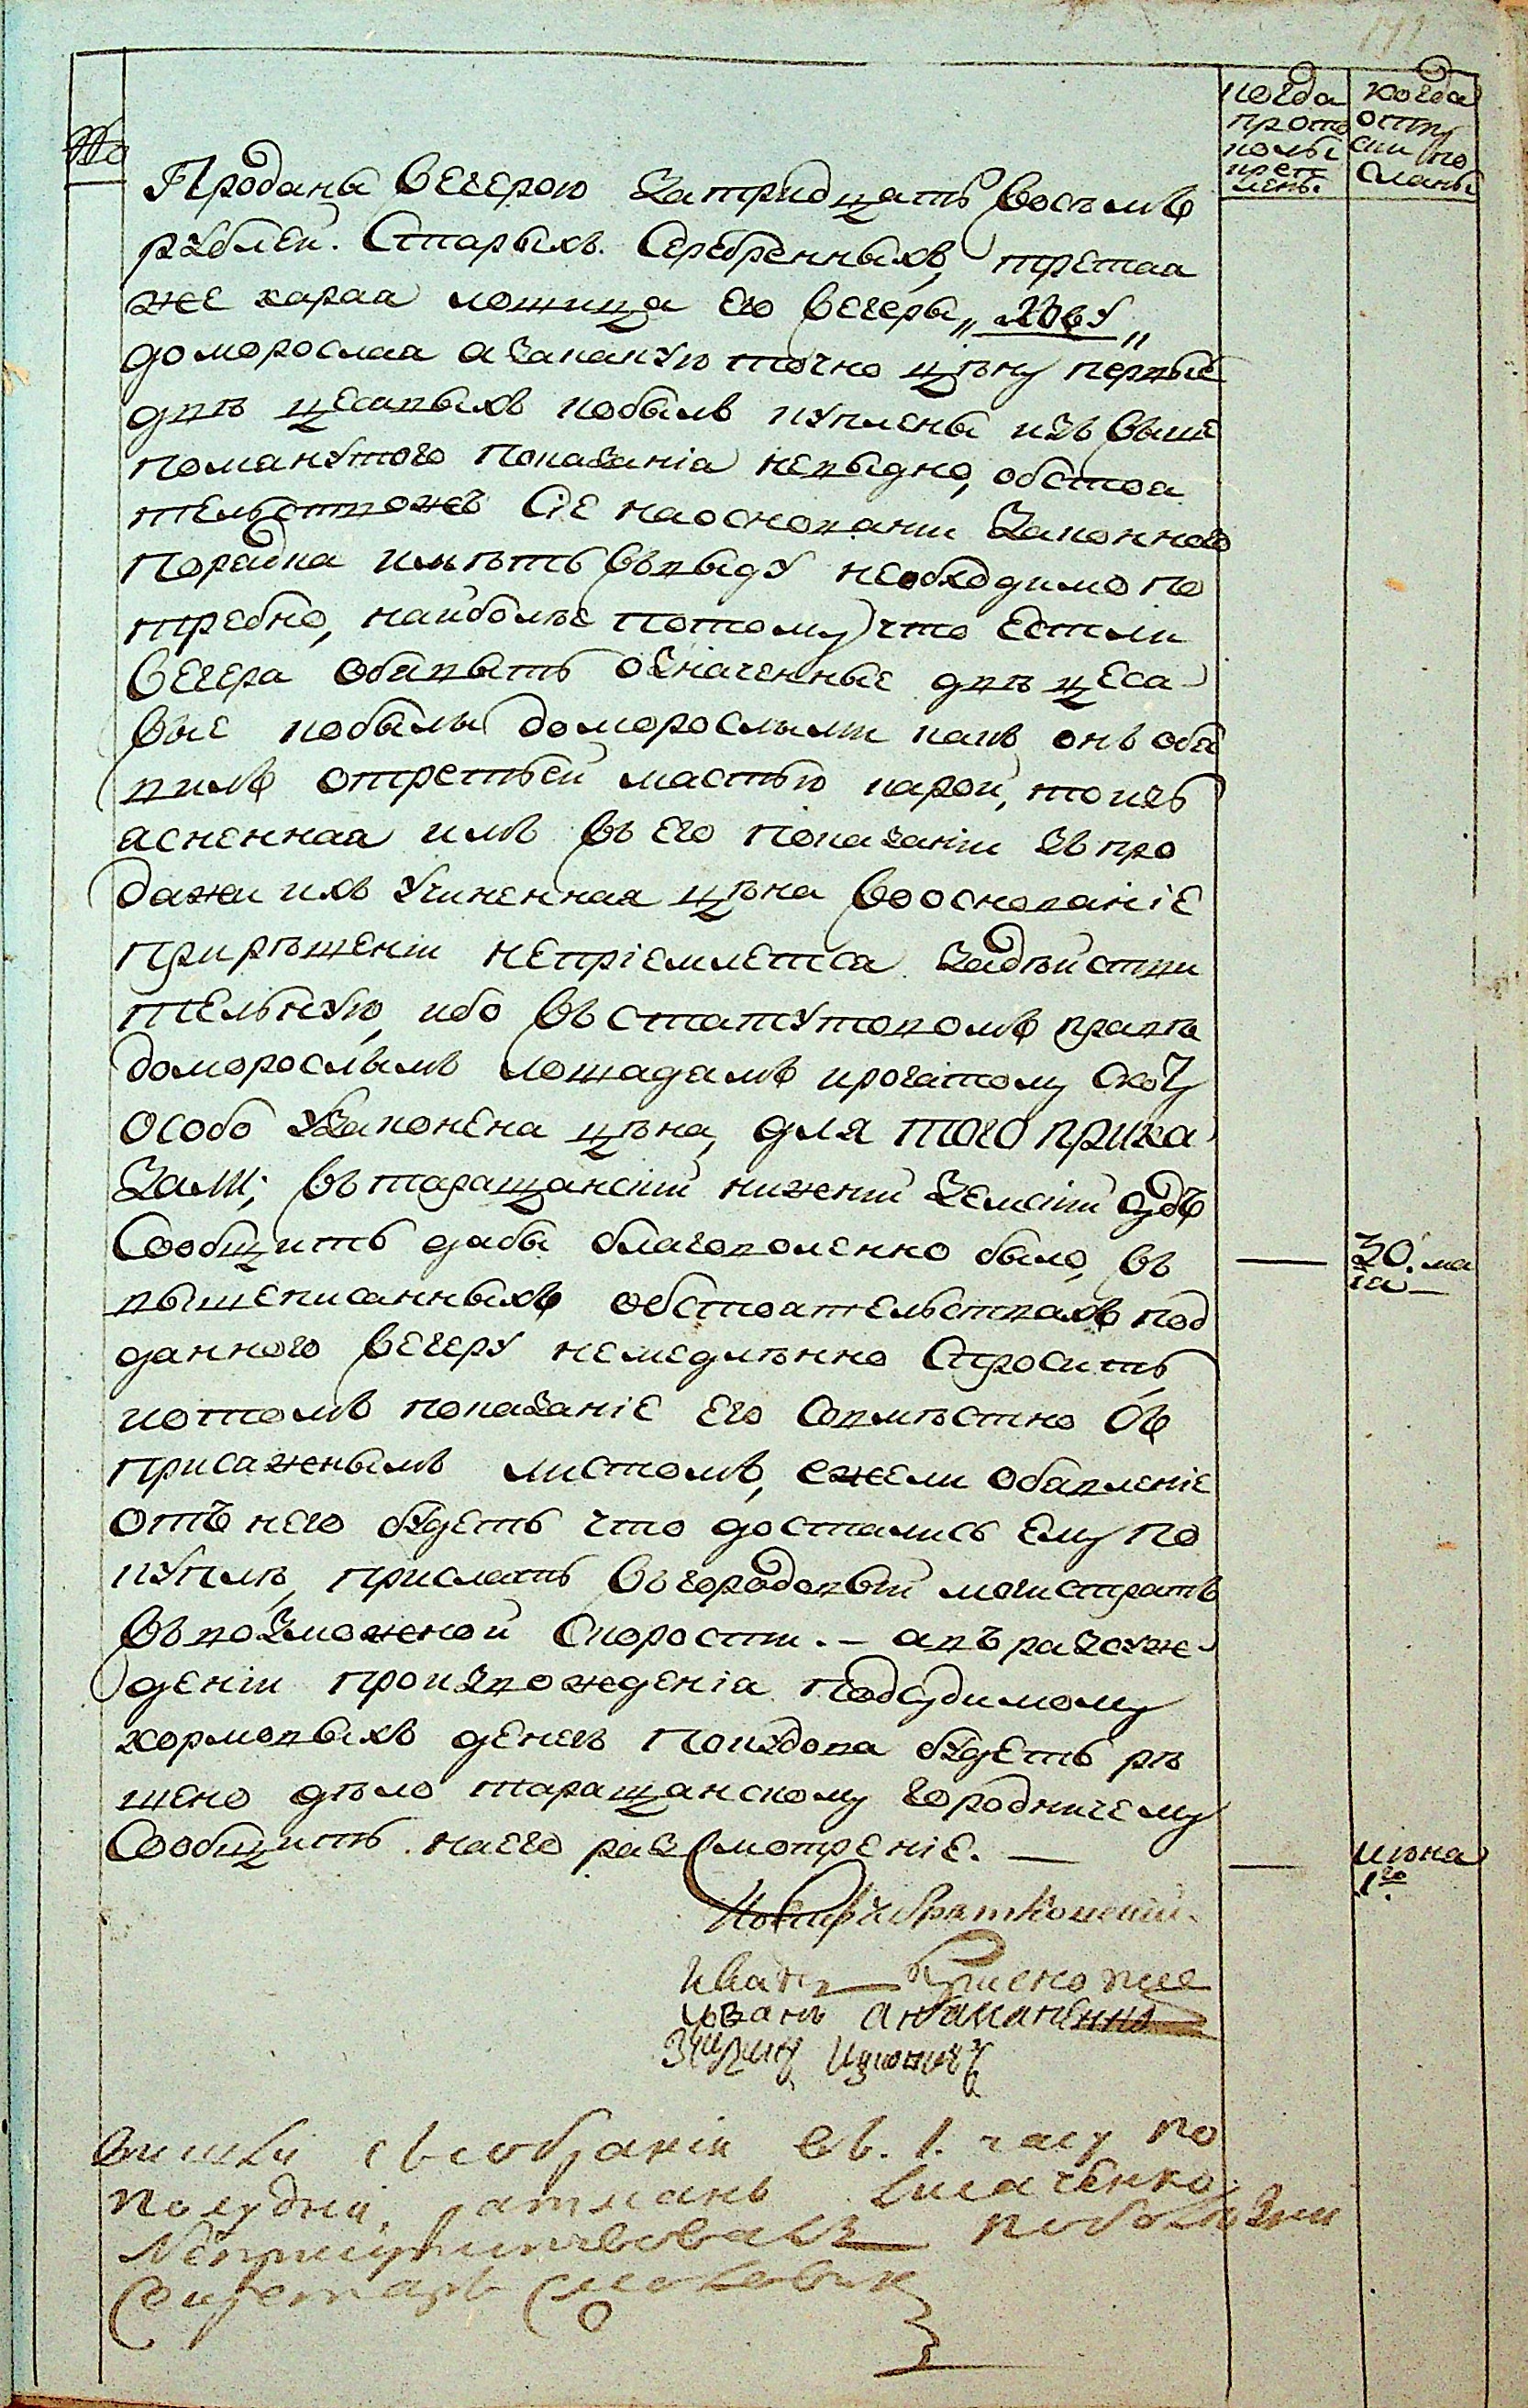 когда
прото
колы
креп
лены.
когда
отпу
ски по
сланы
№
Проданы Вечерою затридцать восъмъ
рублей. Старыхъ. Серебренныхъ, третая
же карая лошица его Вечеры
доморослая азакакую точно цѣну первые
двѣ цесавыхъ кобылъ куплены изъ выше
помянутого показанія невыдно, обстоя
тельствожъ Сіе наоснования Законного
порядка имѣть въвыду необходимо по
требно, наиболѣе потому что естли
Вечера обявыть означенные двѣ цеса
вые кобылы доморослыми какъ онъ обя
вилъ отретьей мастью карой, то изъ
ясненная имъ въ его показаніи зъ про
дажи ихъ учиненная цѣна вооснованіе
прирѣшеніи непріемлется задѣйстви
тельную, ибо въ статутовомъ правѣ
доморослымъ лошадямъ ирогатому скоту
особо узаконена цѣна, для того прика
зали; въ таращанскій нижній земскій судъ
Сообщить дабы благоволенно было, въ
вышеписанныхъ обстоятельствахъ под
данного Вечеру немедлѣнно Спросить
иотомъ показаніе его Совмѣстно съ
присяжнымъ листомъ, ежели обявленіе
отъ него будетъ что достались ему по
купля, прислать въгородовый магистратъ
въ возможной скорости. — авъ разсуж
деніи произвожденія подсудимому
кормовыхъ денегъ покудова будетъ рѣ
шено дѣло таращанскому городничему
Сообщить наего разсмотреніе. —
— 30. ма
ія —
— июня
1го
Иванъ
Иванъ
въ. 1. часу по
полудни, ратманъ
Неприсутствовалъ
Секретарь